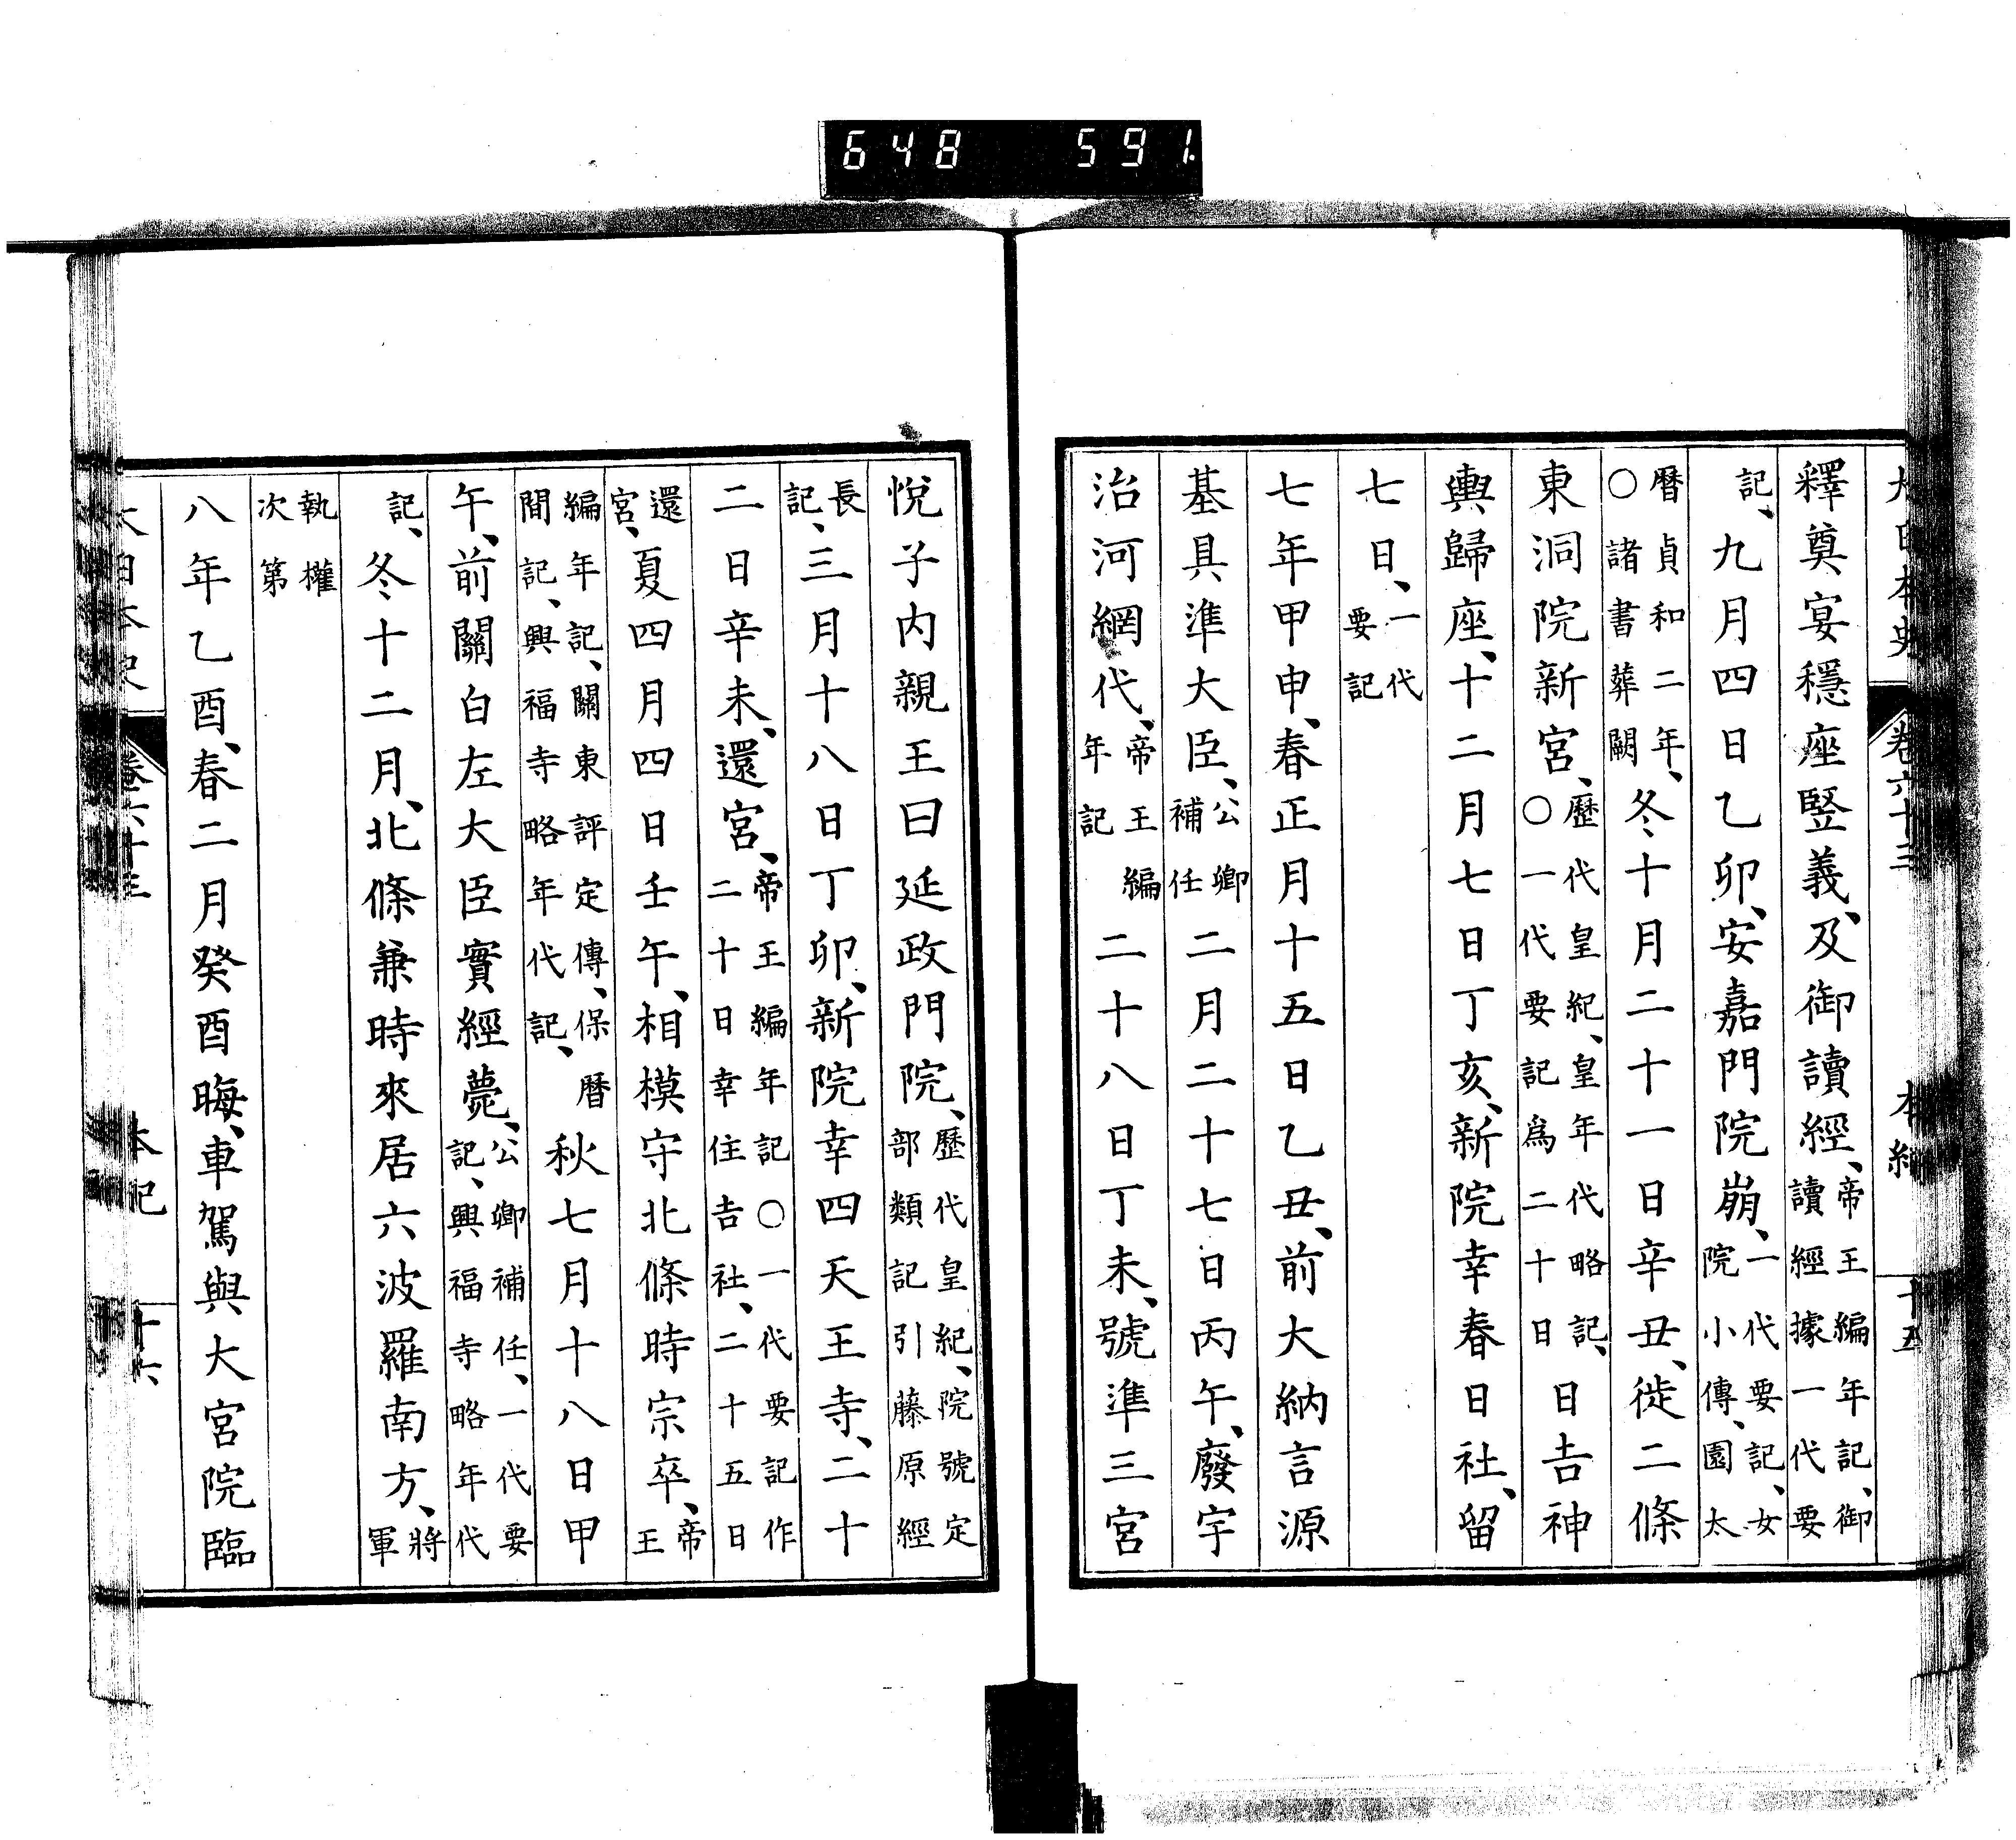 648 591
大日本史 卷六十三 本紀 十五
釋奠宴穩座竪義、及御讀經、帝王編年記、御讀經據一代要
記、九月四日乙卯、安嘉門院崩、一代要記、女院小傳、園太
曆貞和二年、○諸書葬闕冬十月二十一日辛丑、徙二條
東洞院新宮、歷代皇紀、皇年代略記、○一代要記爲二十日日吉神
輿歸座、十二月七日丁亥、新院幸春日社、留
七日、一代要記
七年甲申、春正月十五日乙丑、前大納言源
基具準大臣、公卿補任二月二十七日丙午、廢宇
治河網代、帝王編年記二十八日丁未、號準三宮
悅子內親王曰延政門院、歷代皇紀、院號定部類記引藤原經
長記、三月十八日丁卯、新院幸四天王寺、二十
二日辛未、還宮、帝王編年記○一代要記作二十日幸住吉社、二十五日
還宮、夏四月四日壬午、相模守北條時宗卒、帝王
編年記、關東評定傳、保曆間記、興福寺略年代記、秋七月十八日甲
午、前關白左大臣實經薨、公卿補任、一代要記、興福寺略年代
記、冬十二月、北條兼時來居六波羅南方、將軍
執權次第
八年乙酉、春二月癸酉晦、車駕與大宮院臨
大日本史 卷六十三 本紀 十六